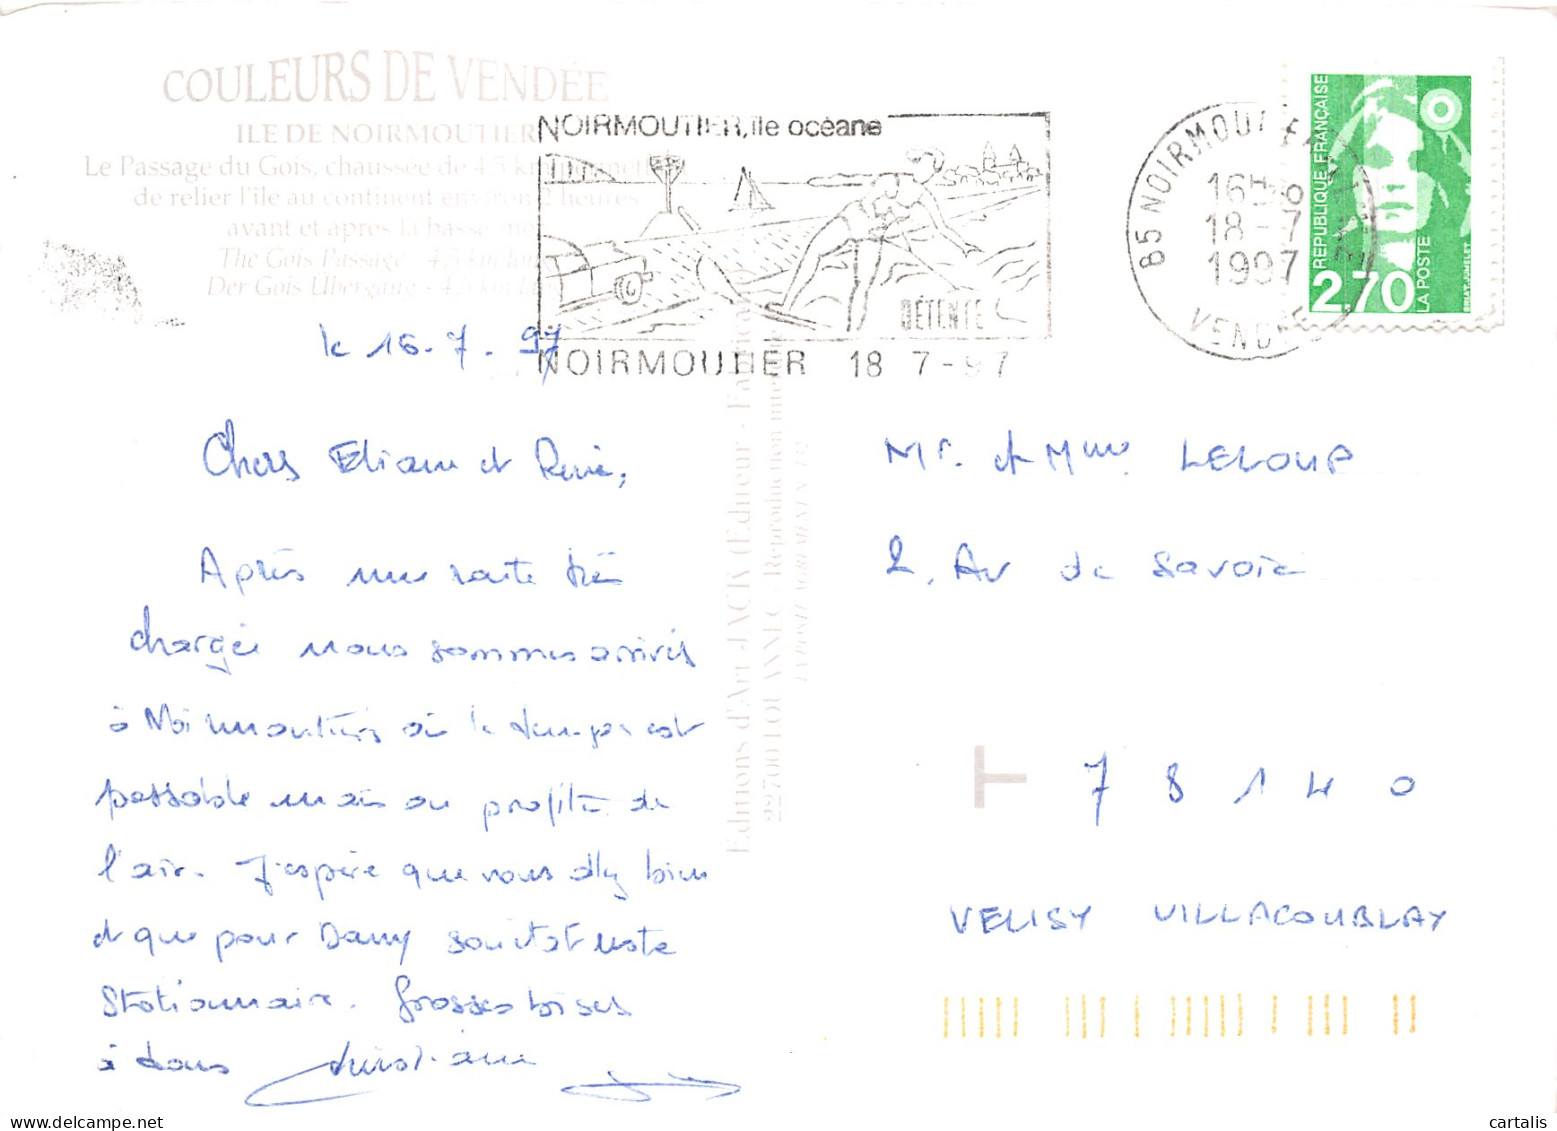 COULEURS DE VENDÉE
ILE DE NOIRMOUTIER
Le Passage du Gois, chaussée de 4,5 km permet
de relier l'île au continent environ 2 heures
avant et après la basse mer
The Gois Passage - 4,5 km long
Der Gois Übergang - 4,5 km lang
NOIRMOUTIER, île océane
DÉTENTE
NOIRMOUTIER 18 7-97
85 NOIRMOUTIER
16H
18-7
1997
VENDEE
RÉPUBLIQUE FRANÇAISE
2,70
LA POSTE
BRIAT-JUMELET
le 16.7.97
Chers Eliane et René,
Après une route très
chargée nous sommes arrivés
à Noirmoutiers où le temps est
passable mais on profite de
l'air. J'espère que vous allez bien
et que pour Dany son état reste
Stationnaire. Grosses bises
à tous Christiane
Editions d'Art JACK (Editeur - Fabricant)
22700 LOUANNEC - Reproduction interdite
Mr. et Mme. LELOUP
2, Av de Savoie
T 78140
VELISY VILLACOUBLAY
cartalis